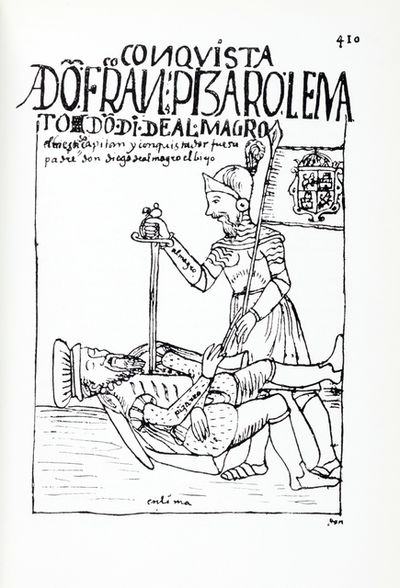 410
CONQVISTA
ADŌ FRĀN:co PIZARO LE MA
TO DŌ DI DE ALMAGRO
el mestizo capitan y conquistador fue su
padre don diego de almagro el biejo
almagro
pizarro
en lima